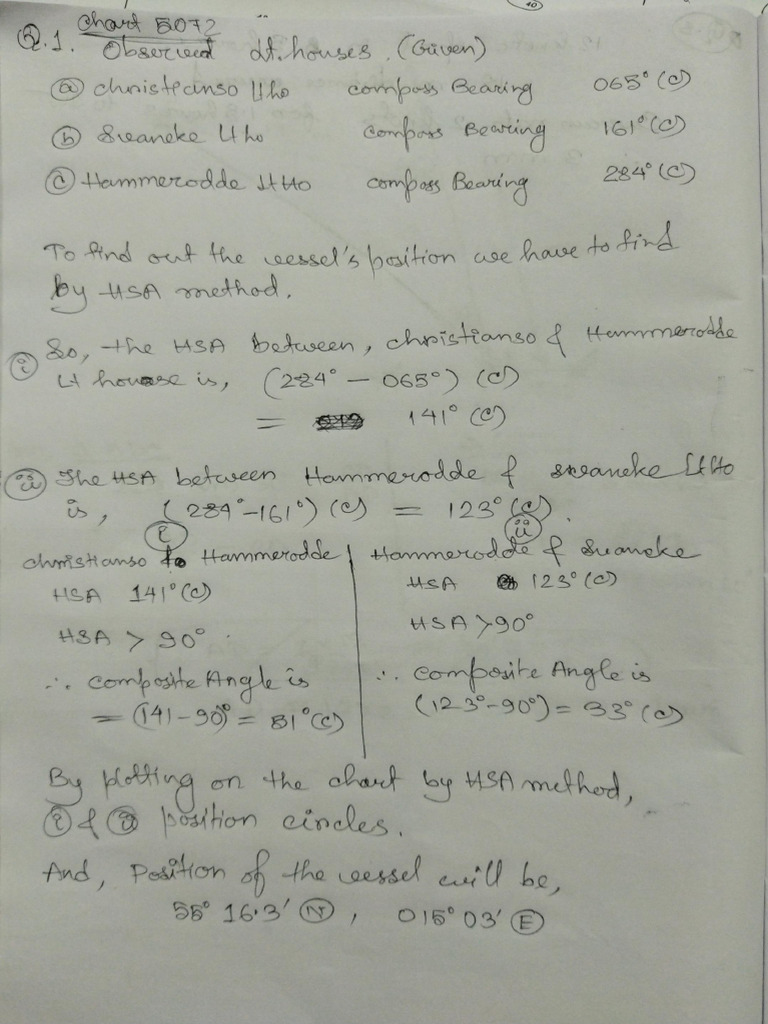 Q.1. Chart 5072
Observed Lt. houses. (Given)
(a) Christianso LtHo compass Bearing 065° (C)
(b) Svaneke LtHo compass Bearing 161° (C)
(c) Hammerodde LtHo compass Bearing 284° (C)
To find out the vessel's position we have to find
by HSA method.
(i) So, the HSA between, christianso & Hammerodde
Lt house is, (284° - 065°) (C)
= 141° (C)
(ii) The HSA between Hammerodde & svaneke LtHo
is, (284°-161°) (C) = 123° (C).
(i)
christianso to Hammerodde
HSA 141° (C)
HSA > 90°.
∴ composite Angle is
= (141-90)° = 51° (C)
(ii)
Hammerodde & Svaneke
HSA 123° (C)
HSA > 90°
∴ composite Angle is
(123°-90°) = 33° (C)
By plotting on the chart by HSA method,
(i) & (ii) position circles.
And, Position of the vessel will be,
55° 16.3' (N), 015° 03' (E)